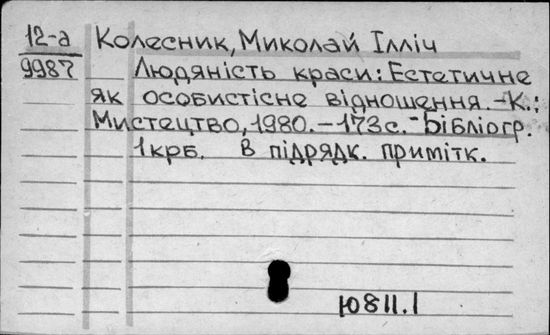 12-а Колесник, Микола́й Ілліч
9987 Людяність краси: Естетичне
як особистісне відношення. –К.:
Мистецтво, 1980. – 173с. – Бібліогр.
1крб. в підрядк. примітк.
Ю811.1